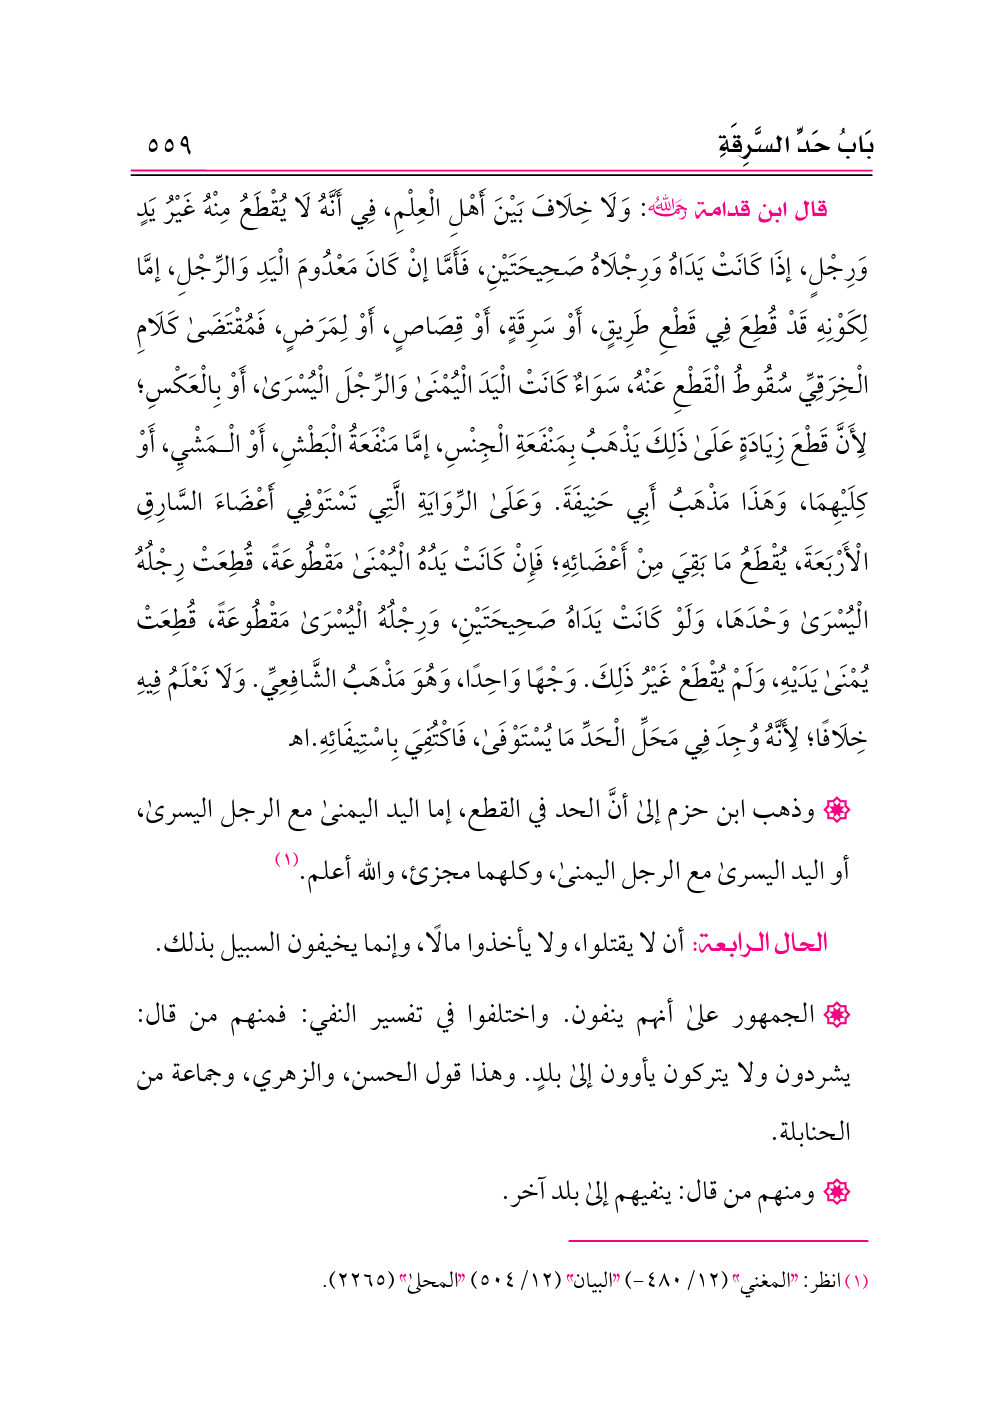 بَابُ حَدِّ السَّرِقَةِ ٥٥٩
قال ابن قدامة رحمه الله: وَلَا خِلَافَ بَيْنَ أَهْلِ الْعِلْمِ، فِي أَنَّهُ لَا يُقْطَعُ مِنْهُ غَيْرُ يَدٍ
وَرِجْلٍ، إذَا كَانَتْ يَدَاهُ وَرِجْلَاهُ صَحِيحَتَيْنِ، فَأَمَّا إنْ كَانَ مَعْدُومَ الْيَدِ وَالرِّجْلِ، إمَّا
لِكَوْنِهِ قَدْ قُطِعَ فِي قَطْعِ طَرِيقٍ، أَوْ سَرِقَةٍ، أَوْ قِصَاصٍ، أَوْ لِمَرَضٍ، فَمُقْتَضَىٰ كَلَامِ
الْخِرَقِيِّ سُقُوطُ الْقَطْعِ عَنْهُ، سَوَاءٌ كَانَتْ الْيَدَ الْيُمْنَىٰ وَالرِّجْلَ الْيُسْرَىٰ، أَوْ بِالْعَكْسِ؛
لِأَنَّ قَطْعَ زِيَادَةٍ عَلَىٰ ذَلِكَ يَذْهَبُ بِمَنْفَعَةِ الْجِنْسِ، إمَّا مَنْفَعَةُ الْبَطْشِ، أَوْ الْـمَشْيِ، أَوْ
كِلَيْهِمَا، وَهَذَا مَذْهَبُ أَبِي حَنِيفَةَ. وَعَلَىٰ الرِّوَايَةِ الَّتِي تَسْتَوْفِي أَعْضَاءَ السَّارِقِ
الْأَرْبَعَةَ، يُقْطَعُ مَا بَقِيَ مِنْ أَعْضَائِهِ؛ فَإِنْ كَانَتْ يَدُهُ الْيُمْنَىٰ مَقْطُوعَةً، قُطِعَتْ رِجْلُهُ
الْيُسْرَىٰ وَحْدَهَا، وَلَوْ كَانَتْ يَدَاهُ صَحِيحَتَيْنِ، وَرِجْلُهُ الْيُسْرَىٰ مَقْطُوعَةً، قُطِعَتْ
يُمْنَىٰ يَدَيْهِ، وَلَمْ يُقْطَعْ غَيْرُ ذَلِكَ. وَجْهًا وَاحِدًا، وَهُوَ مَذْهَبُ الشَّافِعِيِّ. وَلَا نَعْلَمُ فِيهِ
خِلَافًا؛ لِأَنَّهُ وُجِدَ فِي مَحَلِّ الْحَدِّ مَا يُسْتَوْفَىٰ، فَاكْتُفِيَ بِاسْتِيفَائِهِ.اﻫ
وذهب ابن حزم إلىٰ أنَّ الحد في القطع، إما اليد اليمنىٰ مع الرجل اليسرىٰ،
أو اليد اليسرىٰ مع الرجل اليمنىٰ، وكلهما مجزئ، والله أعلم.(١)
الحال الـرابعـة: أن لا يقتلوا، ولا يأخذوا مالًا، وإنما يخيفون السبيل بذلك.
الجمهور علىٰ أنهم ينفون. واختلفوا في تفسير النفي: فمنهم من قال:
يشردون ولا يتركون يأوون إلىٰ بلدٍ. وهذا قول الحسن، والزهري، وجماعة من
الحنابلة.
ومنهم من قال: ينفيهم إلىٰ بلد آخر.
(١) انظر: "المغني" (١٢/ ٤٨٠-) "البيان" (١٢/ ٥٠٤) "المحلىٰ" (٢٢٦٥).